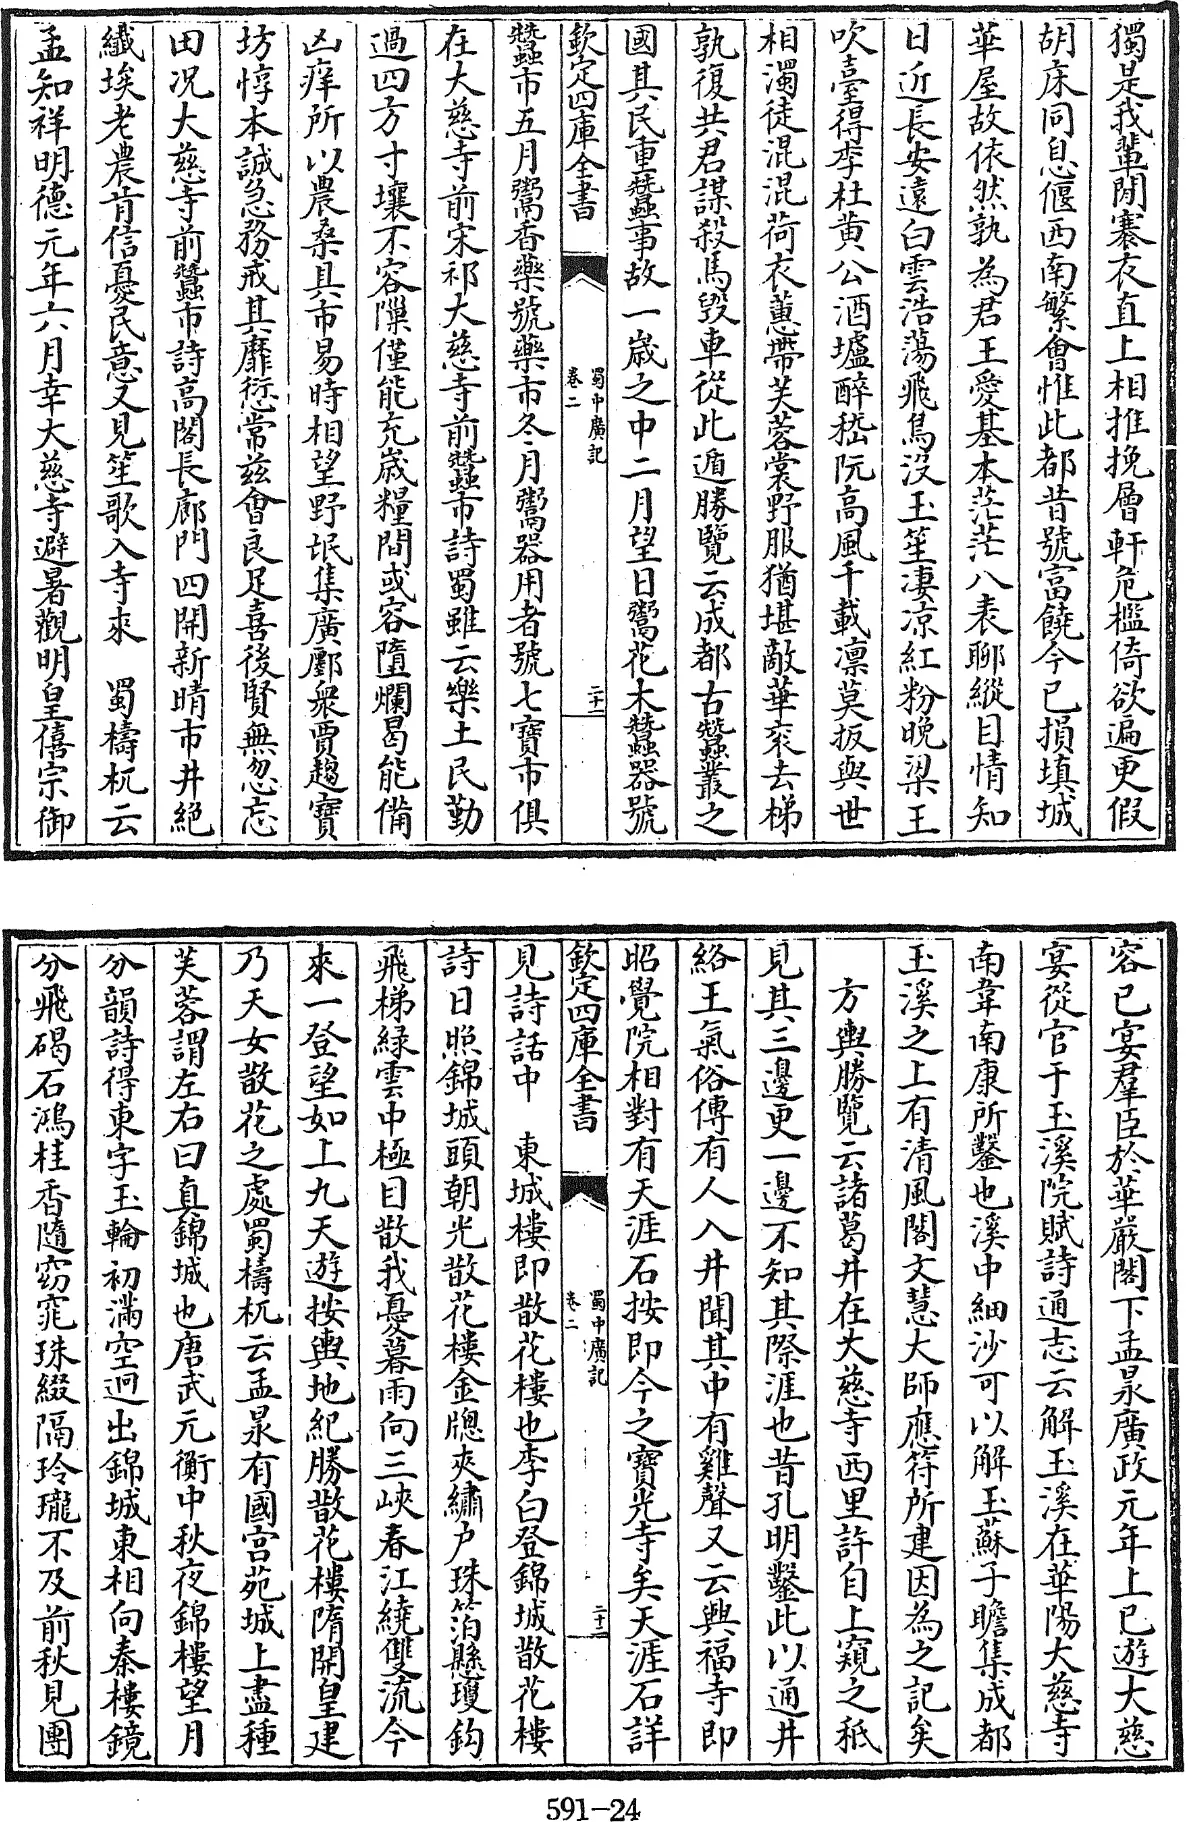 獨是我輩閒褰衣直上相推挽層軒危檻倚欲遍更假
胡床同息偃西南繁會惟此都昔號富饒今已損填城
華屋故依然孰為君王愛基本茫茫八表聊縱目情知
日近長安遠白雲浩蕩飛鳥沒玉笙凄涼紅粉晚梁王
吹臺得李杜黄公酒壚醉嵇阮高風千載凛莫扳與世
相濁徒混混荷衣蕙帶芙蓉裳野服猶堪敵華衮去梯
孰復共君謀殺馬毀車從此遁勝覽云成都古蠶叢之
國其民重蠶事故一歲之中二月望日鬻花木蠶器號
欽定四庫全書
蜀中廣記
卷二
二十一
蠶市五月鬻香藥號藥市冬月鬻器用者號七寶市俱
在大慈寺前宋祁大慈寺前蠶市詩蜀雖云樂土民勤
過四方寸壤不容隟僅能充歲糧間或容墮爛曷能備
凶痒所以農桑具市易時相望野氓集廣鄽衆賈趨寶
坊惇本誠急務戒其靡衍愆常兹會良足喜後賢無忽忘
田况大慈寺前蠶市詩高閣長廊門四開新晴市井絕
纎埃老農肯信憂民意又見笙歌入寺來　蜀檮杌云
孟知祥明德元年六月幸大慈寺避暑觀明皇僖宗御
容已宴羣臣於華嚴閣下孟昶廣政元年上巳遊大慈
宴從官于玉溪院賦詩通志云解玉溪在華陽大慈寺
南韋南康所鑿也溪中細沙可以解玉蘇子瞻集成都
玉溪之上有清風閣文慧大師應符所建因為之記矣
方輿勝覽云諸葛井在大慈寺西里許自上窺之秪
見其三邊更一邊不知其際涯也昔孔明鑿此以通井
絡王氣俗傳有人入井聞其中有雞聲又云興福寺即
昭覺院相對有天涯石按即今之寶光寺矣天涯石詳
欽定四庫全書
蜀中廣記
卷二
二十二
見詩話中　東城樓即散花樓也李白登錦城散花樓
詩日照錦城頭朝光散花樓金牕夾繡户珠箔懸瓊鈎
飛梯緑雲中極目散我憂暮雨向三峽春江繞雙流今
來一登望如上九天遊按輿地紀勝散花樓隋開皇建
乃天女散花之處蜀檮杌云孟昶有國宫苑城上盡種
芙蓉謂左右曰真錦城也唐武元衡中秋夜錦樓望月
分韻詩得東字玉輪初滿空迥出錦城東相向秦樓鏡
分飛碣石鴻桂香隨窈窕珠綴隔玲瓏不及前秋見團
591-24